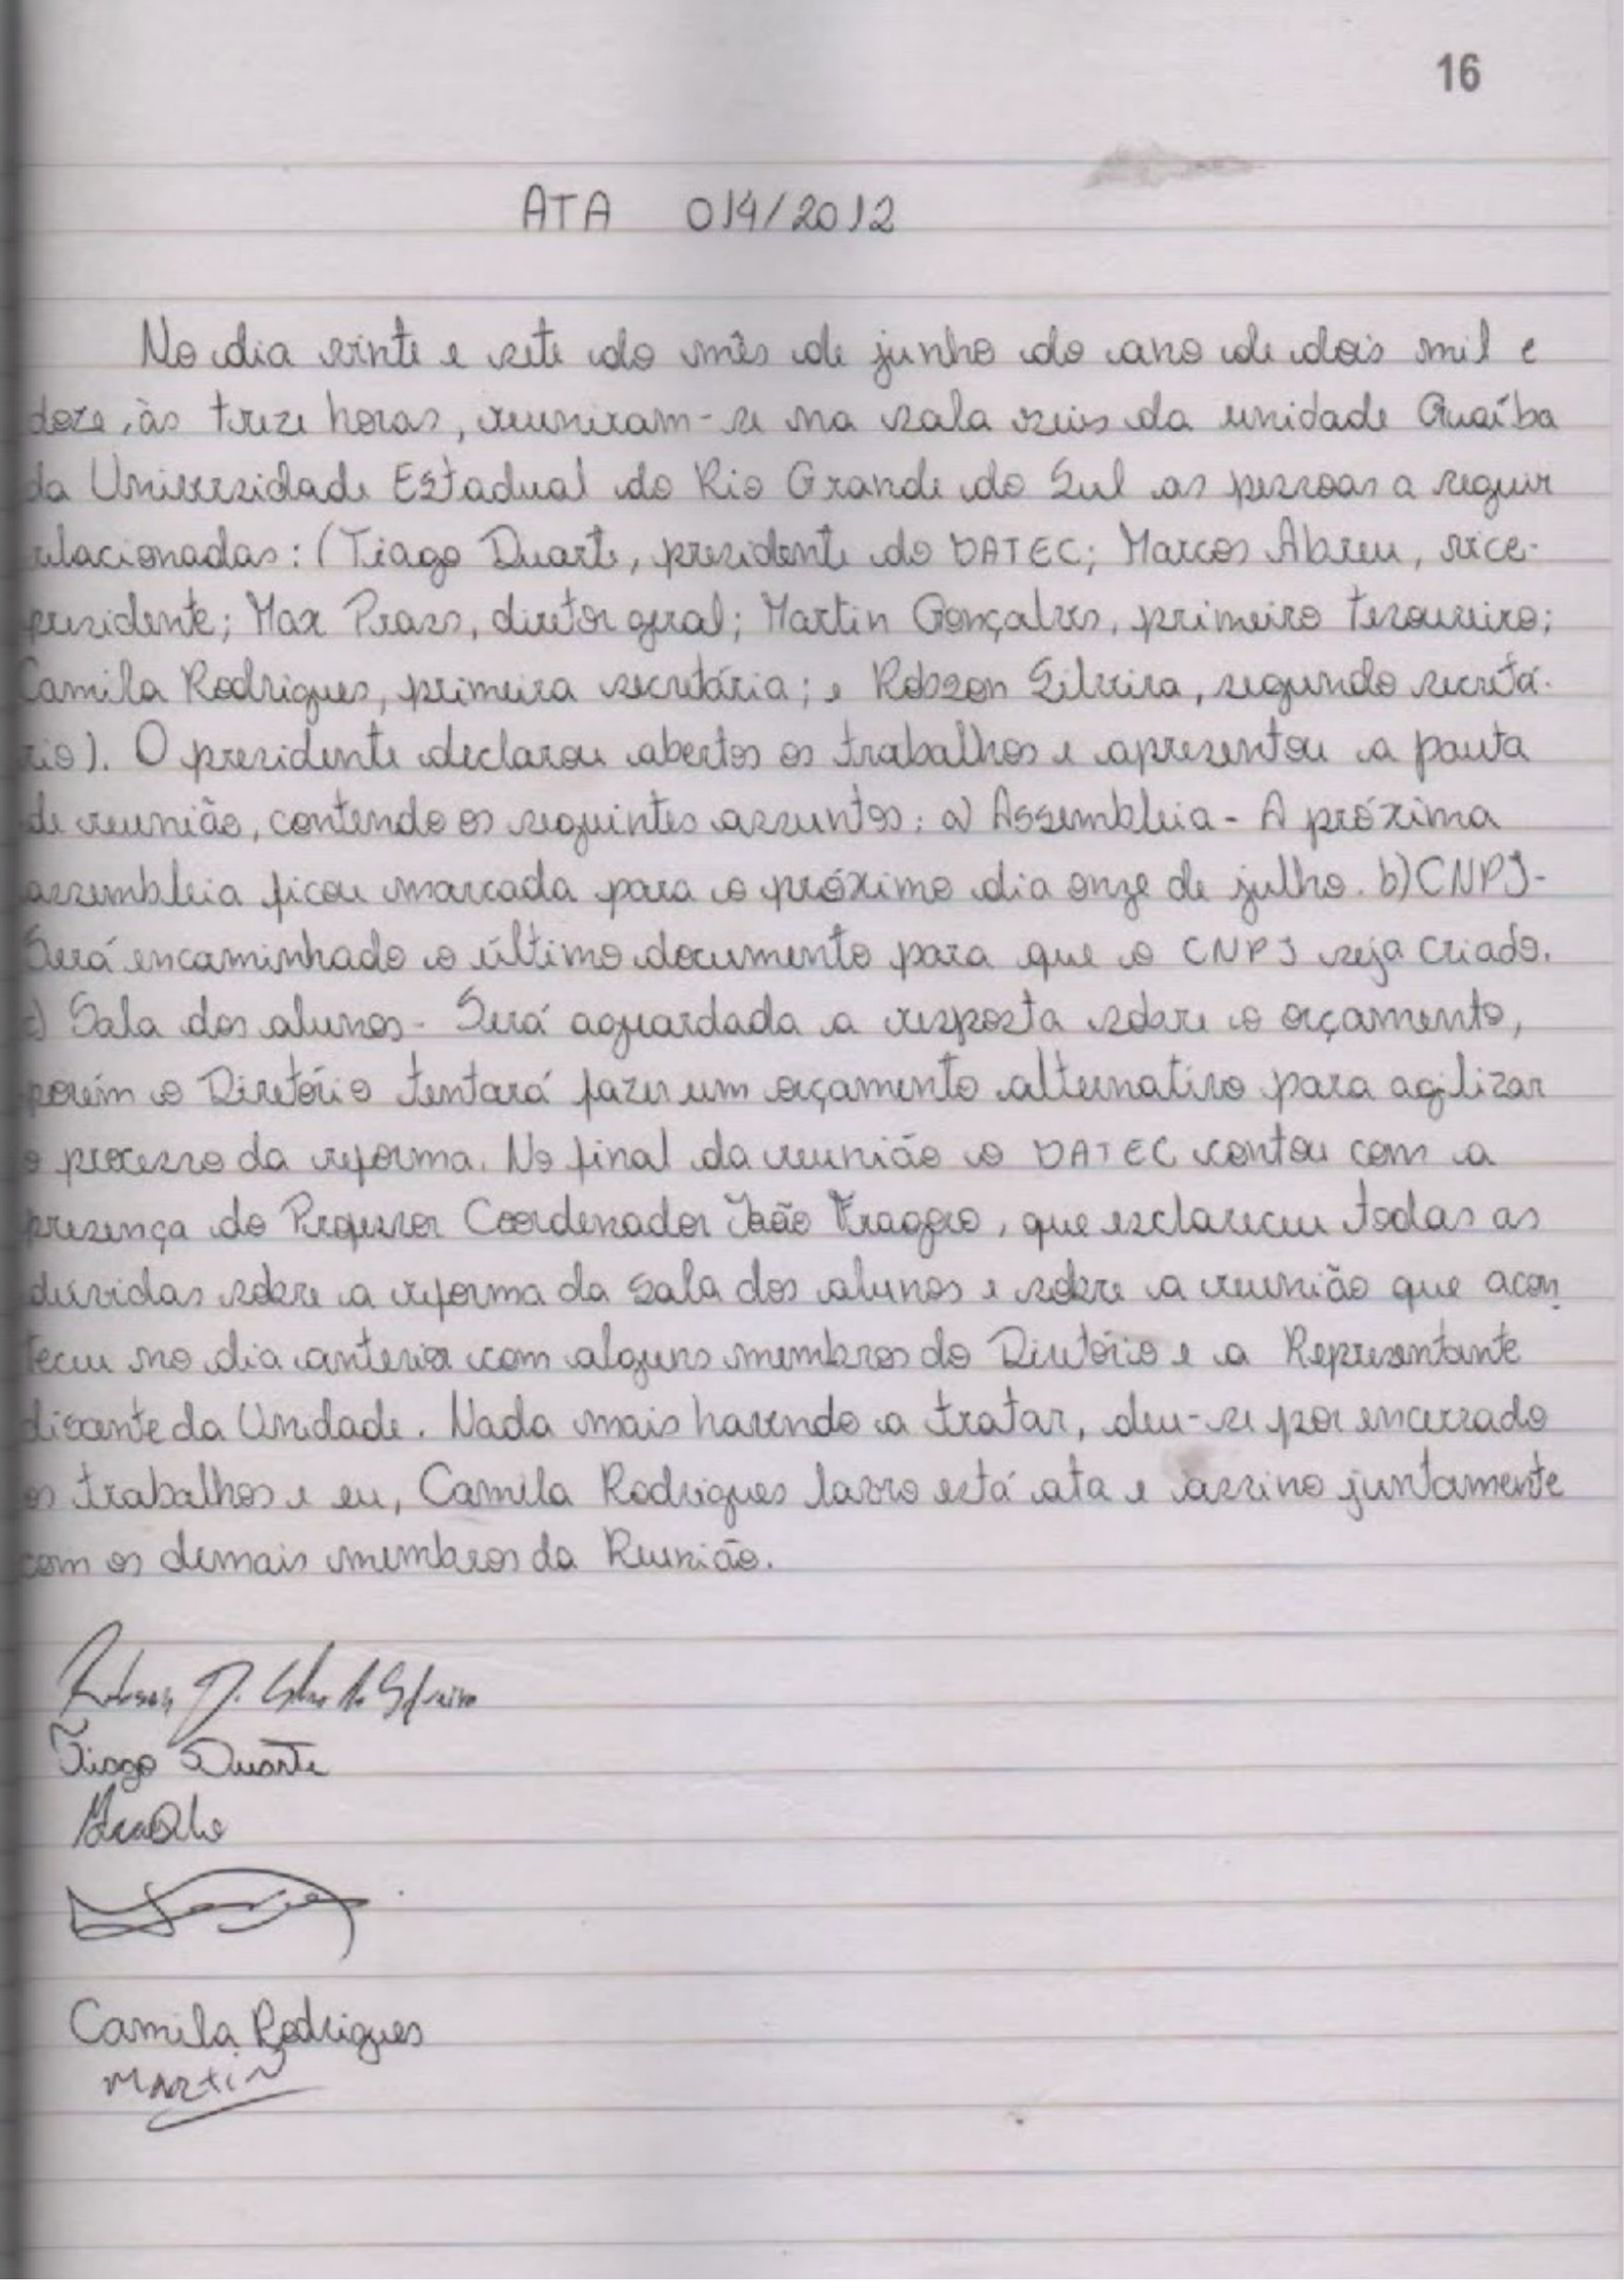 16
ATA 014/2012
No dia vinte e sete do mês de junho do ano de dois mil e
doze, às treze horas, reuniram-se na sala seis da unidade Guaíba
da Universidade Estadual do Rio Grande do Sul as pessoas a seguir
relacionadas: (Tiago Duarte, presidente do DATEC; Marcos Abreu, vice-
presidente; Max Prass, diretor geral; Martin Gonçalves, primeiro tesoureiro;
Camila Rodrigues, primeira secretária; e Robson Silveira, segundo secretá-
rio). O presidente declarou abertos os trabalhos e apresentou a pauta
de reunião, contendo os seguintes assuntos: a) Assembleia - A próxima
assembleia ficou marcada para o próximo dia onze de julho. b) CNPJ -
Será encaminhado o último documento para que o CNPJ seja criado.
c) Sala dos alunos - Será aguardada a resposta sobre o orçamento,
porém o Diretório tentará fazer um orçamento alternativo para agilizar
o processo da reforma. No final da reunião o DATEC contou com a
presença do Professor Coordenador João Fragoso, que esclareceu todas as
dúvidas sobre a reforma da sala dos alunos e sobre a reunião que acon
teceu no dia anterior com alguns membros do Diretório e a Representante
discente da Unidade. Nada mais havendo a tratar, deu-se por encerrado
os trabalhos e eu, Camila Rodrigues lavro está ata e assino juntamente
com os demais membros da Reunião.
Tiago Duarte
Camila Rodrigues
Martin